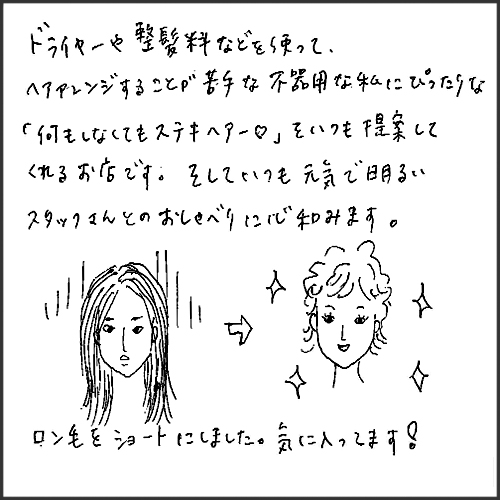 ドライヤーや整髪料などを使って、
ヘアアレンジすることが苦手な不器用な私にぴったりな
「何もしなくてもステキヘアー♡」をいつも提案して
くれるお店です。そしていつも元気で明るい
スタッフさんとのおしゃべりに心和みます。
ロン毛をショートにしました。気に入ってます!